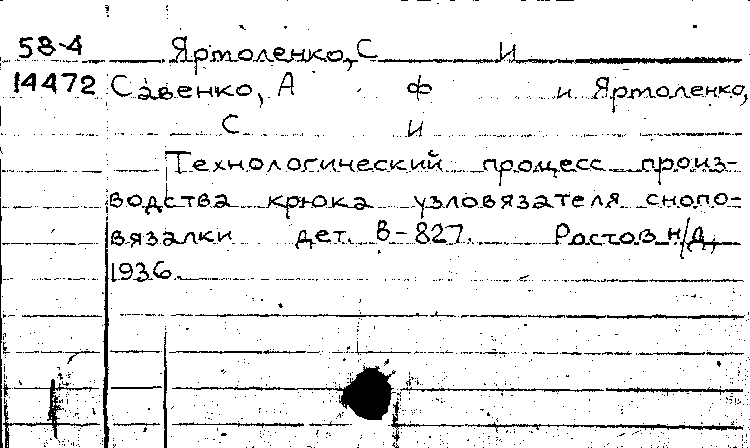 58-4 Яртоленко, С И
14472 Савенко, А Ф и Яртоленко,
С И
Технологический процесс произ-
водства крюка узловязателя снопо-
вязалки дет. В-827. Ростов н/Д,
1936.